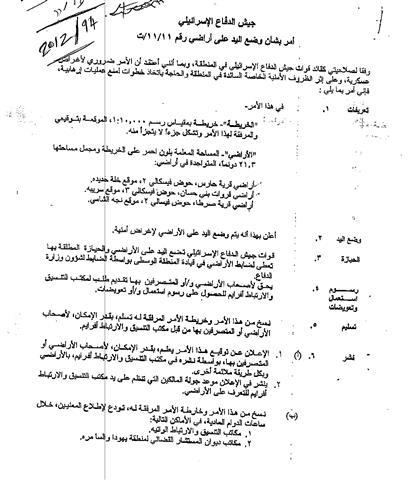 2012/94
جيش الدفاع الإسرائيلي
أمر بشأن وضع اليد على أراضي رقم ١١/١١/ت
وفقا لصلاحيتي كقائد قوات جيش الدفاع الإسرائيلي في المنطقة، وبما أنني أعتقد أن الأمر ضروري لأغراض
عسكرية، وعلى إثر الظروف الأمنية الخاصة السائدة في المنطقة والحاجة باتخاذ خطوات لمنع عمليات إرهابية،
فإني أمر بما يلي:
تعريفات ١. في هذا الأمر-
"الخريطة"- خريطة بمقياس رسم ١:١٠,٠٠٠، الموقعة بتوقيعي
والمرفقة لهذا الأمر وتشكل جزءاً لا يتجزأ منه.
"الأراضي"- المساحة المعلمة بلون أحمر على الخريطة ومجمل مساحتها
٢١.٣ دونماً، المتواجدة في أراضي:
أراضي قرية حارس، حوض فيسكالي ٢، موقع خلة حديده.
أراضي قروات بني حسان، حوض فيسكالي ٣، موقع سريبه.
أراضي قرية صرطا، حوض فيسالي ٢، موقع نجه الشامي.
وضع اليد ٢. أعلن بهذا أنه يتم وضع اليد على الأراضي لإغراض أمنية.
الحيازة ٣. قوات جيش الدفاع الإسرائيلي تضع اليد على الأراضي والحيازة المطلقة بها
تعطى لضابط الأراضي في قيادة المنطقة الوسطى بواسطة الضابط لشؤون وزارة
الدفاع
رسوم ٤. يحق لأصحاب الأراضي و/أو المتصرفين بها تقديم طلب لمكتب التنسيق
استعمال والارتباط أفرايم للحصول على رسوم استعمال و/أو تعويضات.
وتعويضات
تسليم ٥. نسخ من هذا الأمر وخريطة الأمر المرفقة له تسلم، بقدر الإمكان، لأصحاب
الأراضي أو المتصرفين بها من قبل مكتب التنسيق والارتباط أفرايم.
نشر ٦. (أ) ١. الإعلان عن توقيع هذا الأمر يعلم، بقدر الإمكان، لأصحاب الأراضي أو
المتصرفين بها، بواسطة نشره في مكتب التنسيق والارتباط أفرايم، بالأراضي
وبكل طريقة ملائمة أخرى.
٢. ينشر في الإعلان موعد جولة المالكين التي تنظم على يد مكتب التنسيق والارتباط
أفرايم للتعرف على الأراضي.
(ب) نسخ من هذا الأمر وخارطة الأمر المرفقة له، تودع لإطلاع المعنيين، خلال
ساعات الدوام العادية، في الأماكن التالية:
١. مكاتب التنسيق والارتباط الواتية.
٢. مكاتب ديوان المستشار القضائي لمنطقة يهودا والسامره.